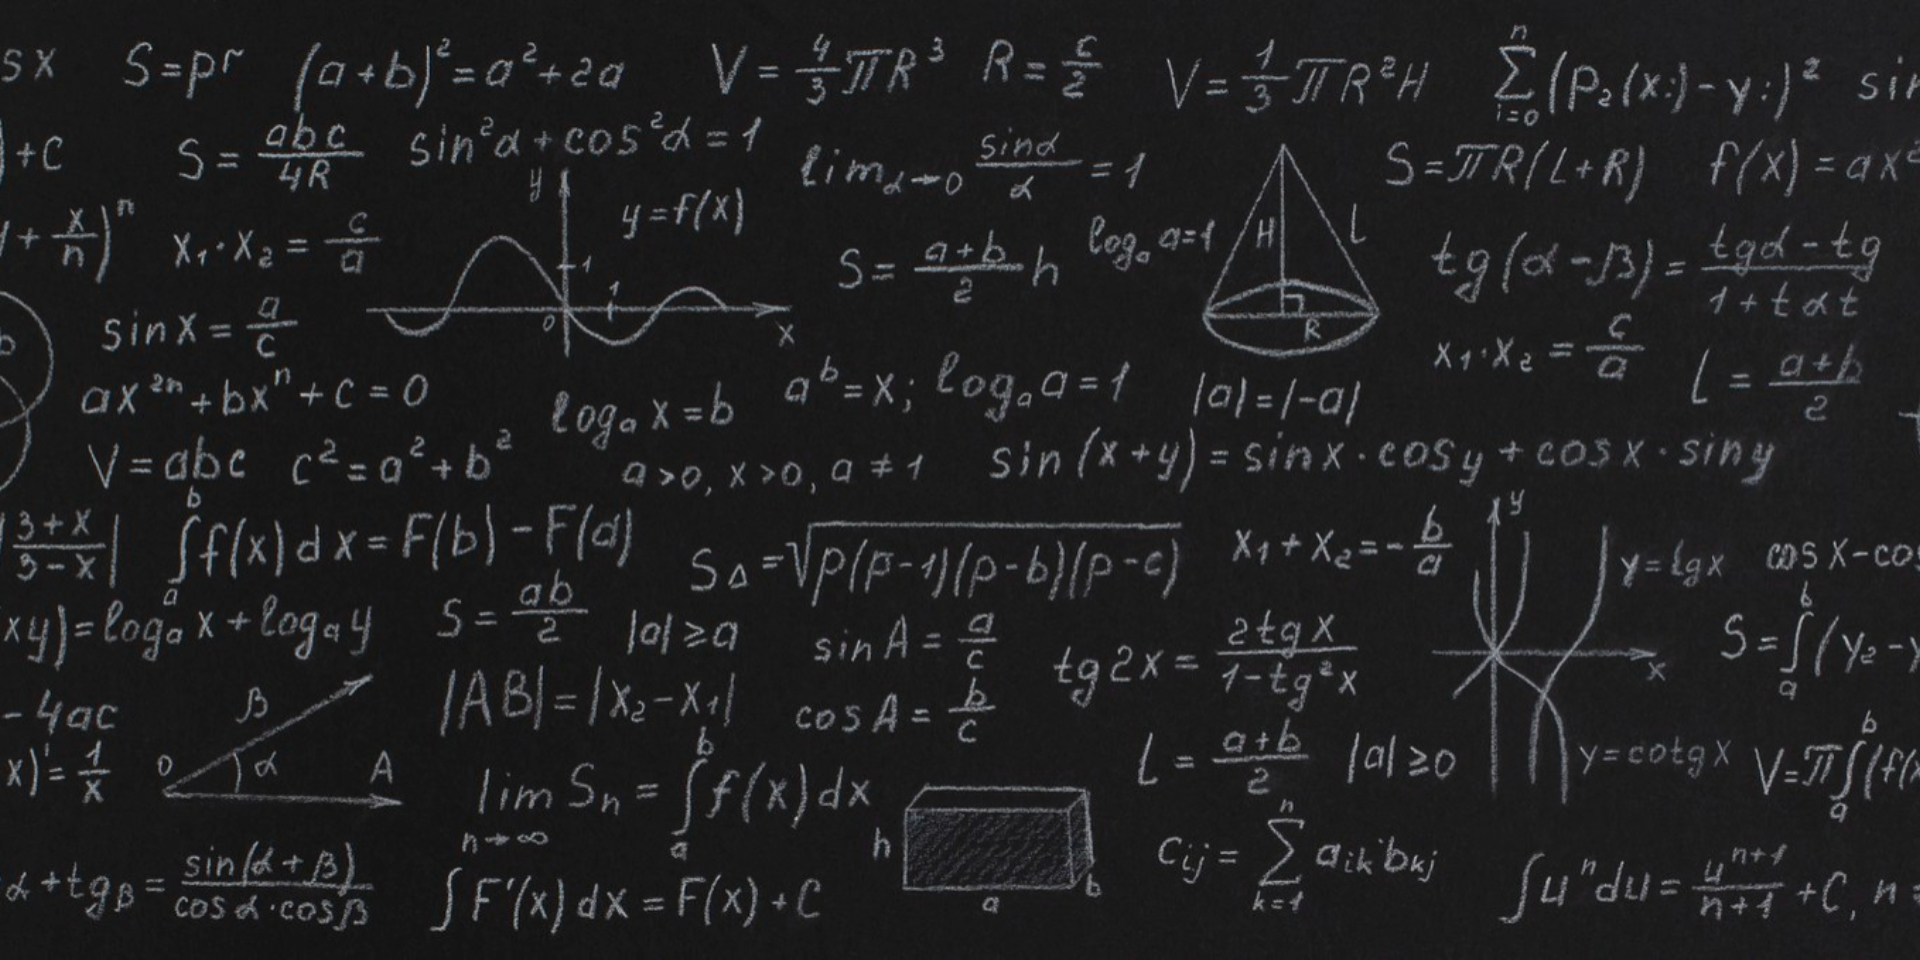 sx S=pr (a+b)²=a²+2a V=4/3πR³ R=c/2 V=1/3πR²H ∑ⁿᵢ₌₀(p₂(x:)-y:)² sin
)+c S=abc/4R sin²α+cos²α=1 lim α→0 sinα/α=1 S=πR(L+R) f(x)=ax²
+x/n)ⁿ x₁·x₂=c/a y y=f(x) S=a+b/2 h logₐa=1 H L tg(α-β)=tgα-tg/1+tαt
b sinx=a/c 1 1 0 x R x₁·x₂=c/a L=a+b/2
ax²ⁿ+bxⁿ+c=0 logₐx=b aᵇ=x; logₐa=1 |a|=|-a|
V=abc c²=a²+b² a>0, x>0, a≠1 sin(x+y)=sinx·cosy+cosx·siny
|3+x/3-x| ∫ₐᵇf(x)dx=F(b)-F(a) S△=√p(p-1)(p-b)(p-c) x₁+x₂=-b/a y y=lgx cosx-cos
xy)=logₐx+logₐy S=ab/2 |a|≥a sinA=a/c tg2x=2tgx/1-tg²x x S=∫ₐᵇ(y₂-y
-4ac β |AB|=|x₂-x₁| cosA=b/c
x)'=1/x 0 α A lim n→∞ Sₙ=∫ₐᵇf(x)dx L=a+b/2 |a|≥0 y=cotgx V=π∫ₐᵇ(f(x
α+tgβ=sin(α+β)/cosα·cosβ ∫F'(x)dx=F(x)+C h a b cᵢⱼ=∑ⁿₖ₌₁aᵢₖbₖⱼ ∫uⁿdu=uⁿ⁺¹/n+1+C, n